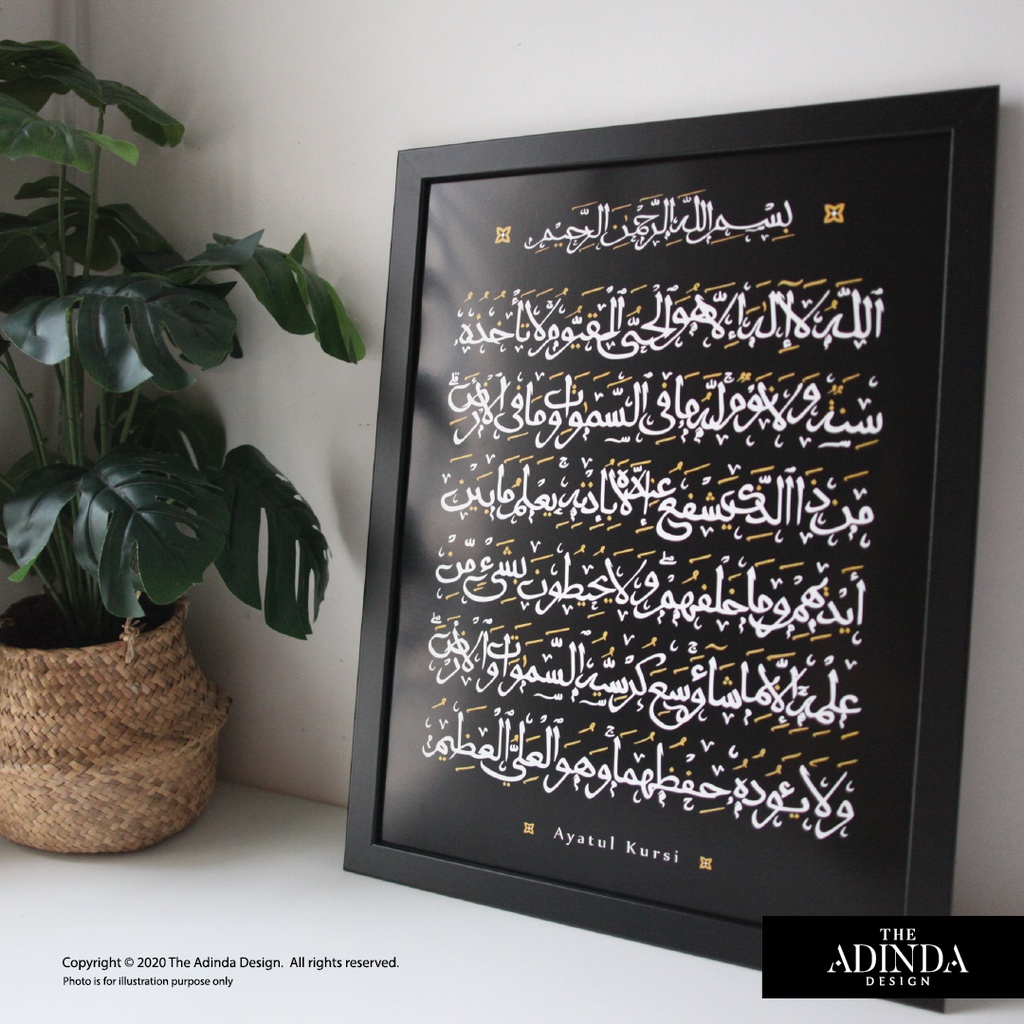 بِسْمِ اللَّهِ الرَّحْمَٰنِ الرَّحِيمِ
ٱللَّهُ لَآ إِلَٰهَ إِلَّا هُوَ ٱلْحَىُّ ٱلْقَيُّومُ لَا تَأْخُذُهُۥ
سِنَةٌ وَلَا نَوْمٌ لَّهُۥ مَا فِى ٱلسَّمَٰوَاتِ وَمَا فِى ٱلْأَرْضِ
مَن ذَا ٱلَّذِى يَشْفَعُ عِندَهُۥٓ إِلَّا بِإِذْنِهِۦ يَعْلَمُ مَا بَيْنَ
أَيْدِيهِمْ وَمَا خَلْفَهُمْ وَلَا يُحِيطُونَ بِشَىْءٍ مِّنْ
عِلْمِهِۦٓ إِلَّا بِمَا شَآءَ وَسِعَ كُرْسِيُّهُ ٱلسَّمَٰوَاتِ وَٱلْأَرْضَ
وَلَا يَـُٔودُهُۥ حِفْظُهُمَا وَهُوَ ٱلْعَلِىُّ ٱلْعَظِيمُ
Ayatul Kursi
THE
ADINDA
DESIGN
Copyright © 2020 The Adinda Design. All rights reserved.
Photo is for illustration purpose only